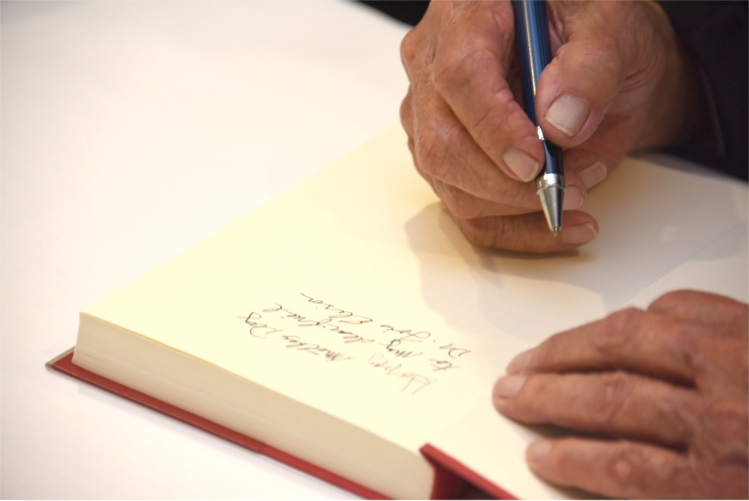 Happy
Mother Day
to my dear friend
Dr Joe Elison